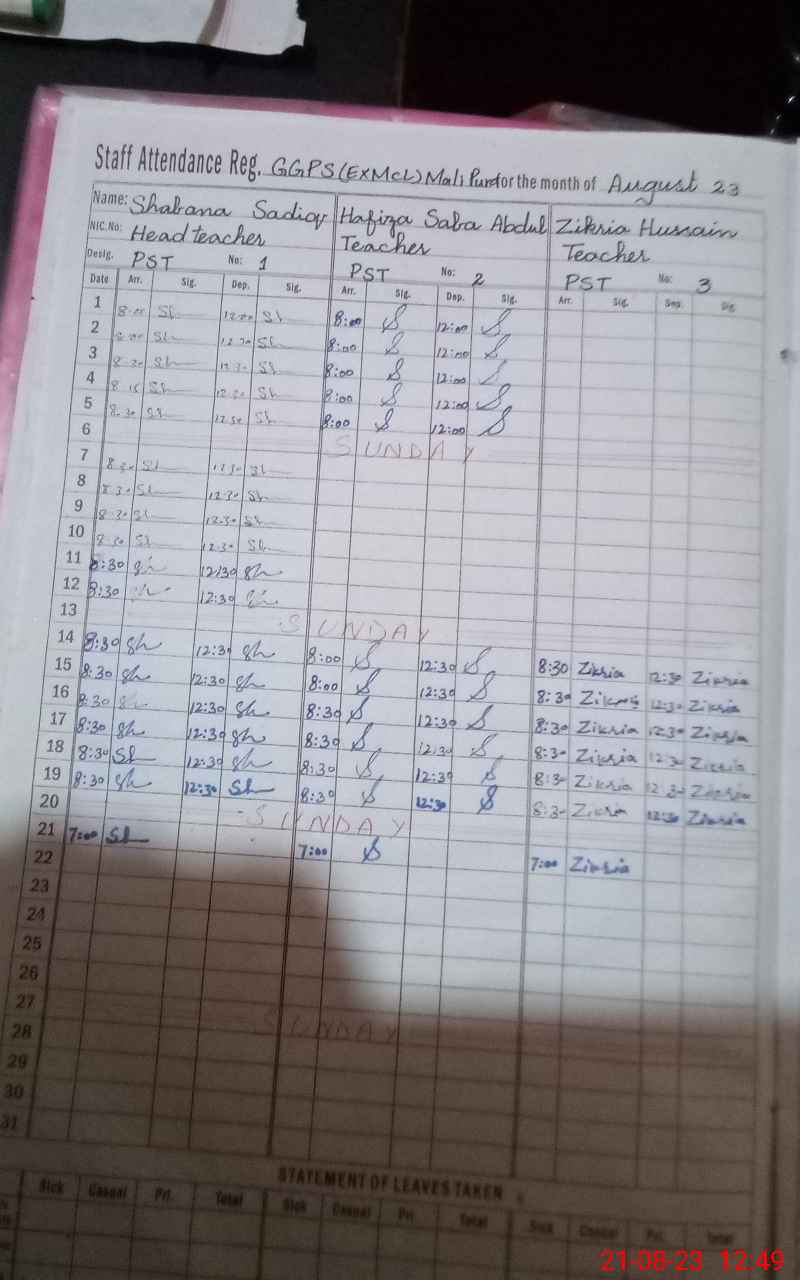 Staff Attendance Reg. GGPS (ExMcL) Mali Pura for the month of August 23
Name: Shabana Sadiqr Hafiza Saba Abdul Zikria Hussain
NIC.No: Head teacher Teacher Teacher
Desig. PST No: 1 PST No: 2 PST No: 3
Date Arr. Sig. Dep. Sig. Arr. Sig. Dep. Sig. Arr. Sig. Dep. Sig
1 8:00 Sh 12:00 Sh 8:00 S 12:00 S
2 8:00 Sh 12:30 Sh 8:00 S 12:00 S
3 8:30 Sh 12:30 Sh 8:00 S 12:00 S
4 8:15 Sh 12:30 Sh 8:00 S 12:00 S
5 8:30 Sh 12:30 Sh 8:00 S 12:00 S
6 SUNDAY
7 8:30 Sh 12:30 Sh
8 8:30 Sh 12:30 Sh
9 8:30 Sh 12:30 Sh
10 8:30 Sh 12:30 Sh
11 8:30 Sh 12:30 Sh
12 8:30 Sh 12:30 Sh
13 SUNDAY
14 8:30 Sh 12:30 Sh 8:00 S 12:30 S 8:30 Zikria 12:30 Zikria
15 8:30 Sh 12:30 Sh 8:00 S 12:30 S 8:30 Zikria 12:30 Zikria
16 8:30 Sh 12:30 Sh 8:30 S 12:30 S 8:30 Zikria 12:30 Zikria
17 8:30 Sh 12:30 Sh 8:30 S 12:30 S 8:30 Zikria 12:30 Zikria
18 8:30 Sh 12:30 Sh 8:30 S 12:30 S 8:30 Zikria 12:30 Zikria
19 8:30 Sh 12:30 Sh 8:30 S 12:30 S 8:30 Zikria 12:30 Zikria
20 SUNDAY
21 7:00 Sh 7:00 S 7:00 Zikria
22
23
24
25
26
27 SUNDAY
28
29
30
31
STATEMENT OF LEAVES TAKEN
Sick Casual Pri. Total Sick Casual Pri Total Sick Casual Pri Total
21-08-23 12:49